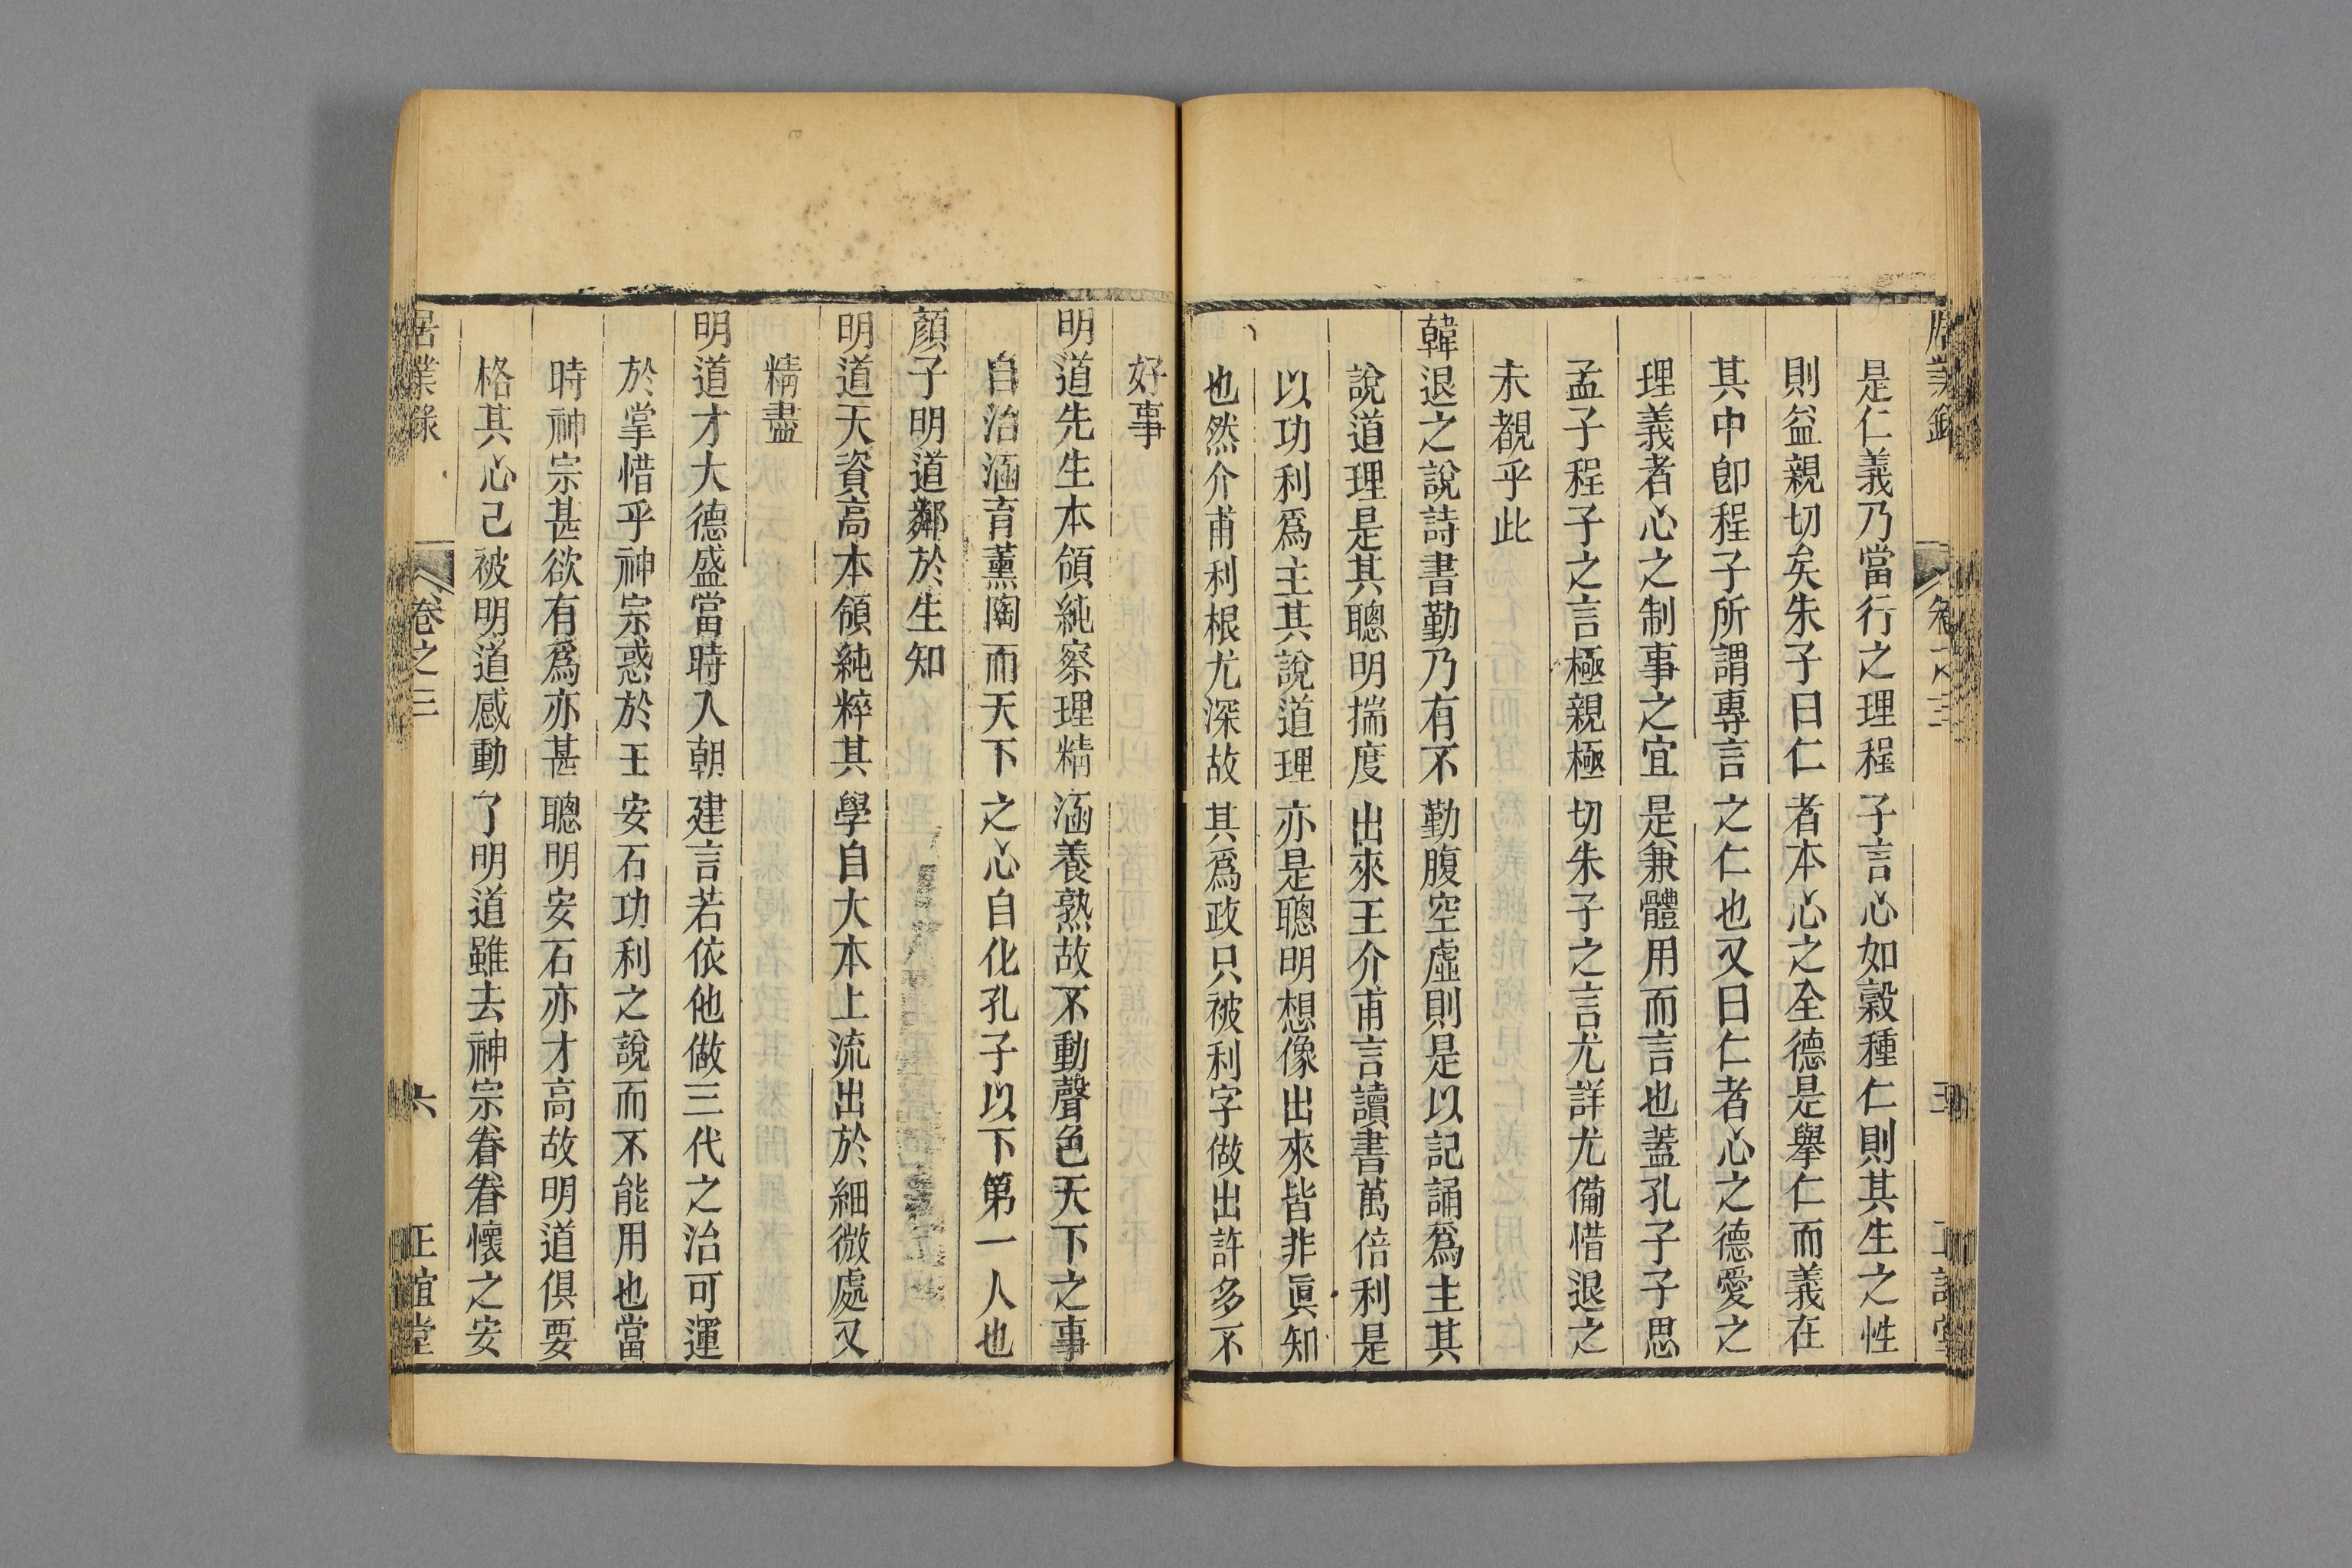 居業錄 卷之三 五 正誼堂
是仁義乃當行之理程子言心如穀種仁則其生之性
則益親切矣朱子曰仁者本心之全德是舉仁而義在
其中卽程子所謂專言之仁也又曰仁者心之德愛之
理義者心之制事之宜是兼體用而言也蓋孔子子思
孟子程子之言極親極切朱子之言尤詳尤備惜退之
未覩乎此
韓退之說詩書勤乃有不勤腹空虛則是以記誦爲主其
說道理是其聰明揣度出來王介甫言讀書萬倍利是
以功利爲主其說道理亦是聰明想像出來皆非眞知
也然介甫利根尤深故其爲政只被利字做出許多不
好事
明道先生本領純察理精涵養熟故不動聲色天下之事
自治涵育薰陶而天下之心自化孔子以下第一人也
顏子明道鄰於生知
明道天資高本領純粹其學自大本上流出於細微處又
精盡
明道才大德盛當時入朝建言若依他做三代之治可運
於掌惜乎神宗惑於王安石功利之說而不能用也當
時神宗甚欲有爲亦甚聰明安石亦才高故明道俱要
格其心己被明道感動了明道雖去神宗眷眷懷之安
居業錄 卷之三 六 正誼堂